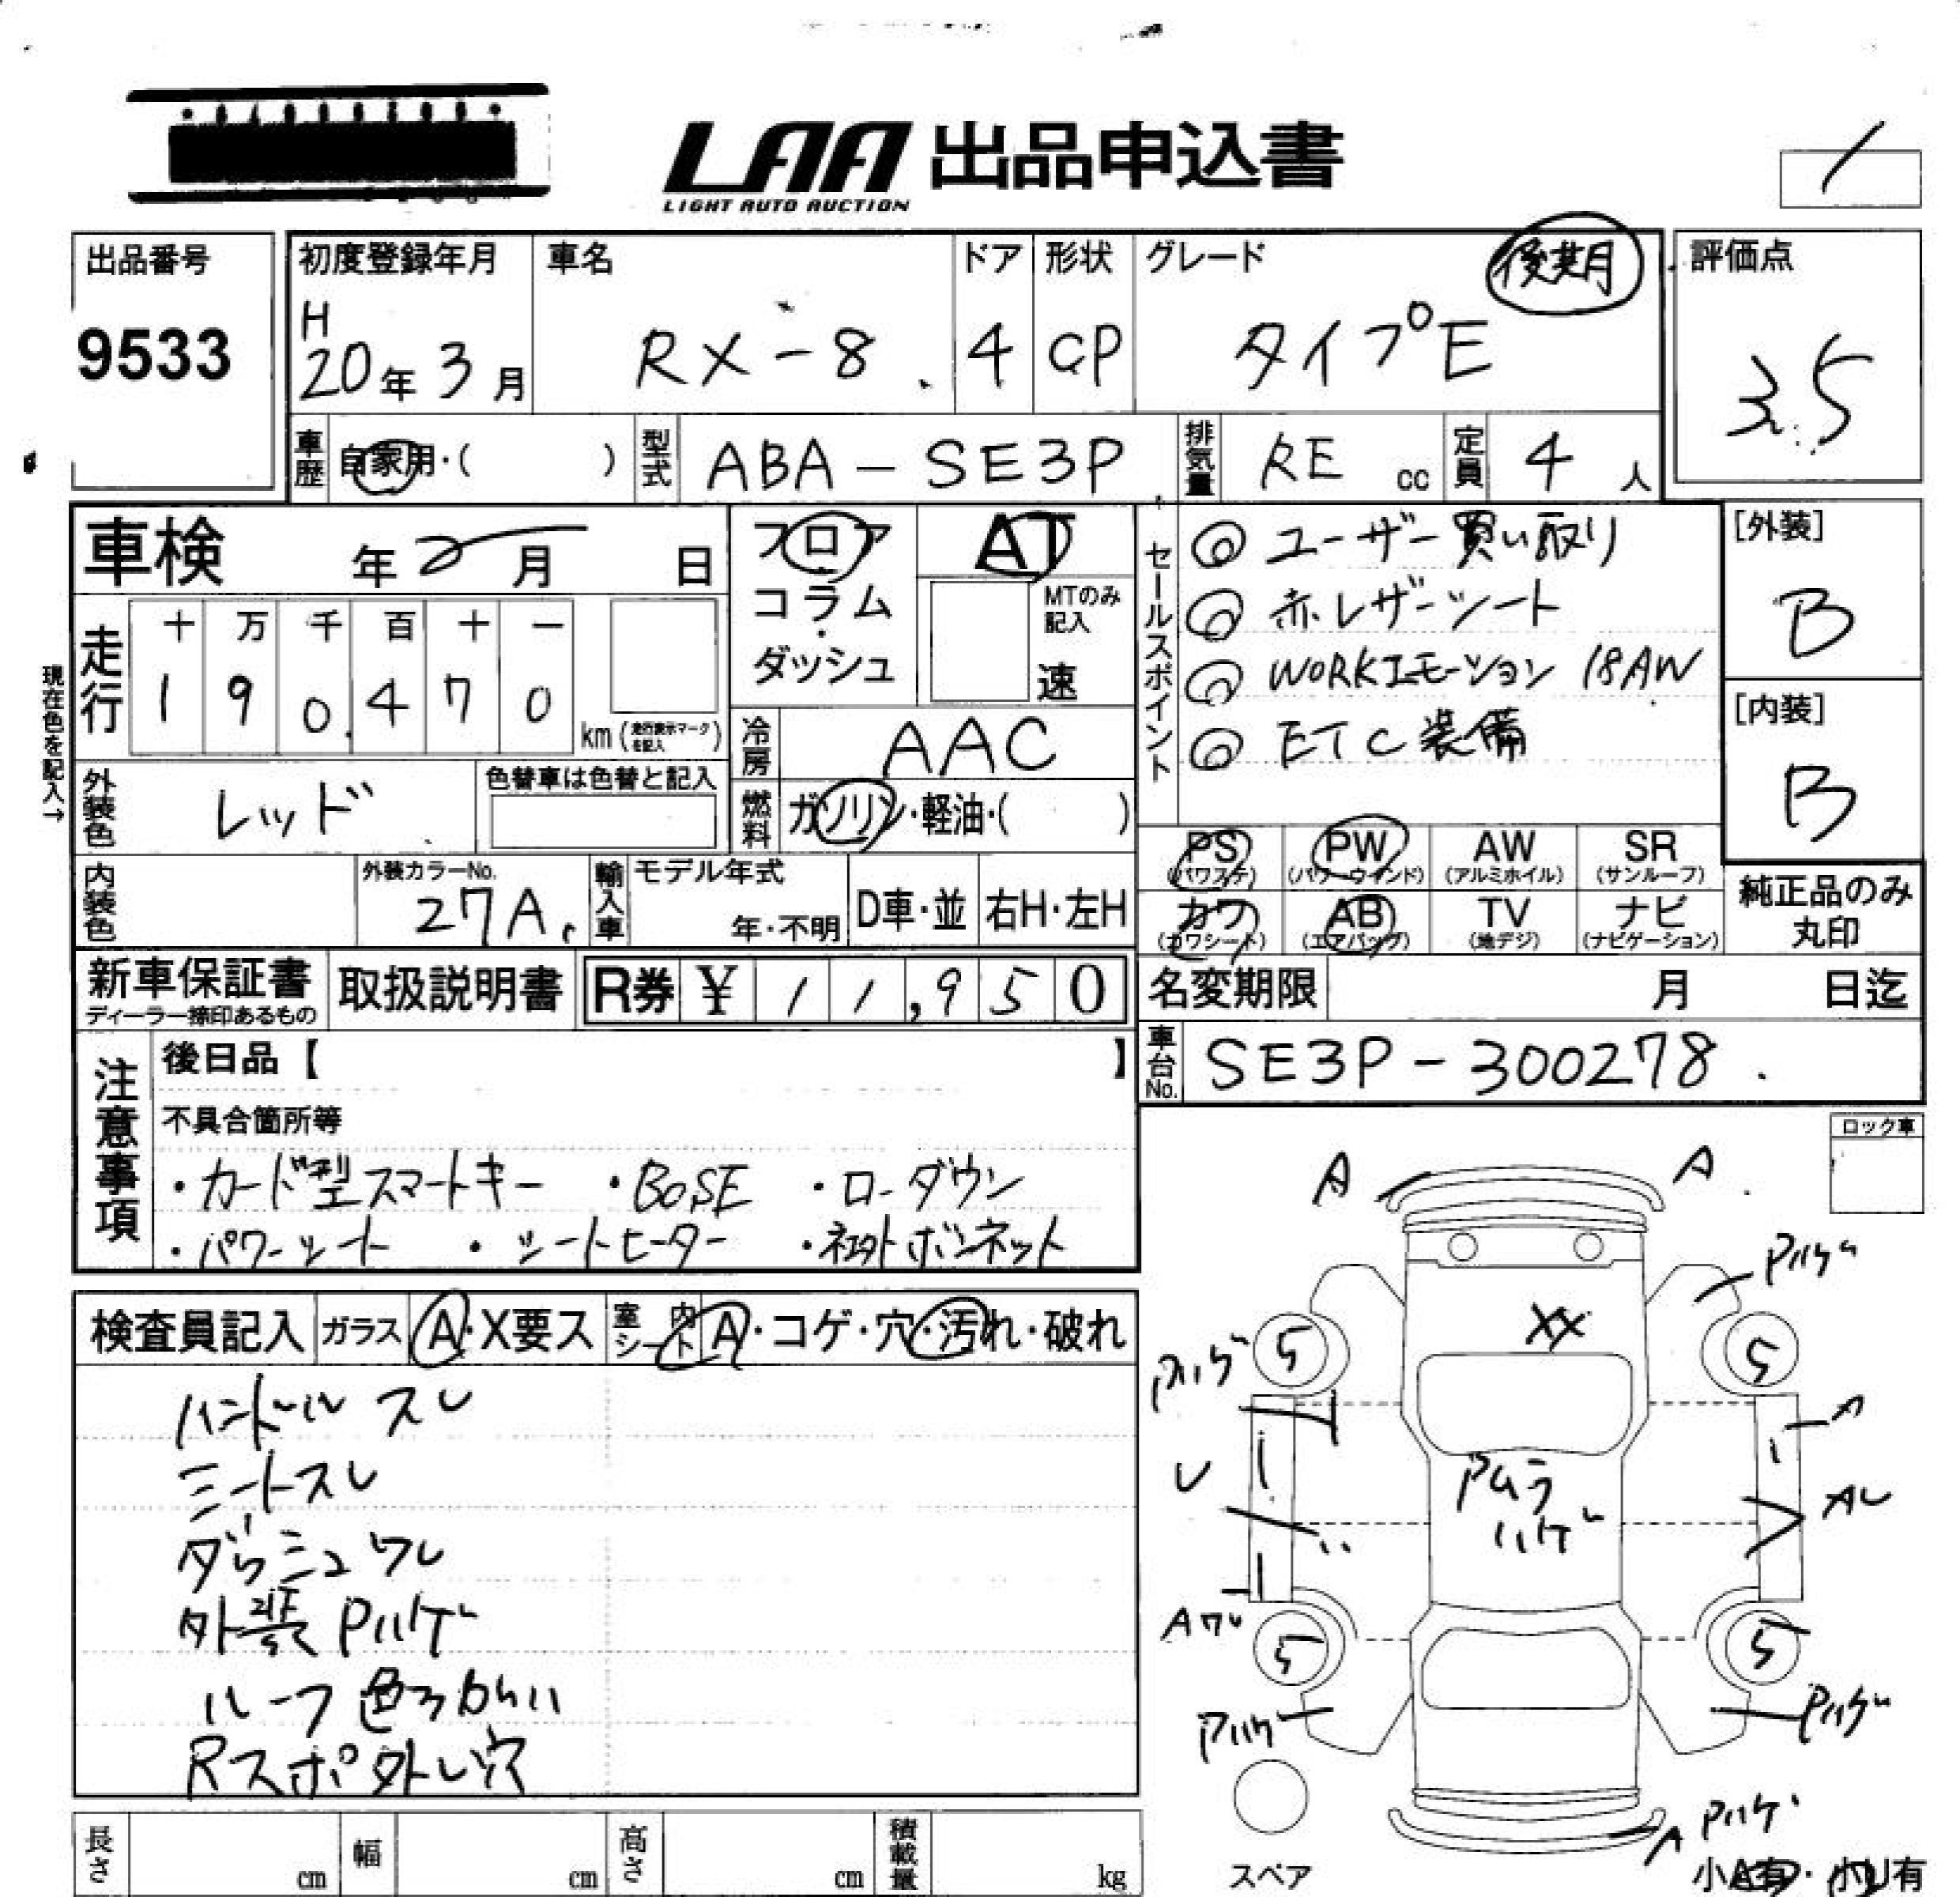 LAA 出品申込書
LIGHT AUTO AUCTION
出品番号
9533
初度登録年月
H
20年3月
車名
RX-8
ドア
4
形状
CP
グレード
後期
タイプE
評価点
3.5
車歴
自家用・( )
型式
ABA-SE3P
排気量
RE cc
定員
4人
車検 年 月 日
フロア
コラム
・
ダッシュ
AT
MTのみ
記入
速
セールスポイント
◎ユーザー買い取り
◎赤レザーシート
◎WORKエモーション 18AW
◎ETC装備
[外装]
B
[内装]
B
現在色を記入→
走行
十 万 千 百 十 一
1 9 0. 4 7 0
km(走行表示マークを記入)
冷房
AAC
外装色
レッド
色替車は色替と記入
燃料
ガソリン・軽油・( )
PS
(パワステ)
PW
(パワーウインド)
AW
(アルミホイル)
SR
(サンルーフ)
内装色
外装カラーNo.
27A
輸入車
モデル年式
年・不明
D車・並
右H・左H
カワ
(カワシート)
AB
(エアバッグ)
TV
(地デジ)
ナビ
(ナビゲーション)
純正品のみ
丸印
新車保証書
ディーラー捺印あるもの
取扱説明書
R券 ¥11,950
名変期限 月 日迄
車台No.
SE3P-300278
注意事項
後日品【 】
不具合箇所等
・カード型スマートキー ・BOSE ・ローダウン
・パワーシート ・シートヒーター ・社外ボンネット
ロック車
検査員記入
ガラス A・X要ス
室内シート A・コゲ・穴・汚れ・破れ
ハンドルスレ
シートスレ
ダッシュワレ
外装Pハゲ
ルーフ色ちがい
Rスポ外し穴
A
A
Pハゲ
XX
Pハゲ
5
5
A
U
Pムラ
ハゲ
AU
Aワレ
5
5
Pハゲ
Pハゲ
Pハゲ
A
スペア
小A有・小U有
長さ cm
幅 cm
高さ cm
積載量 kg